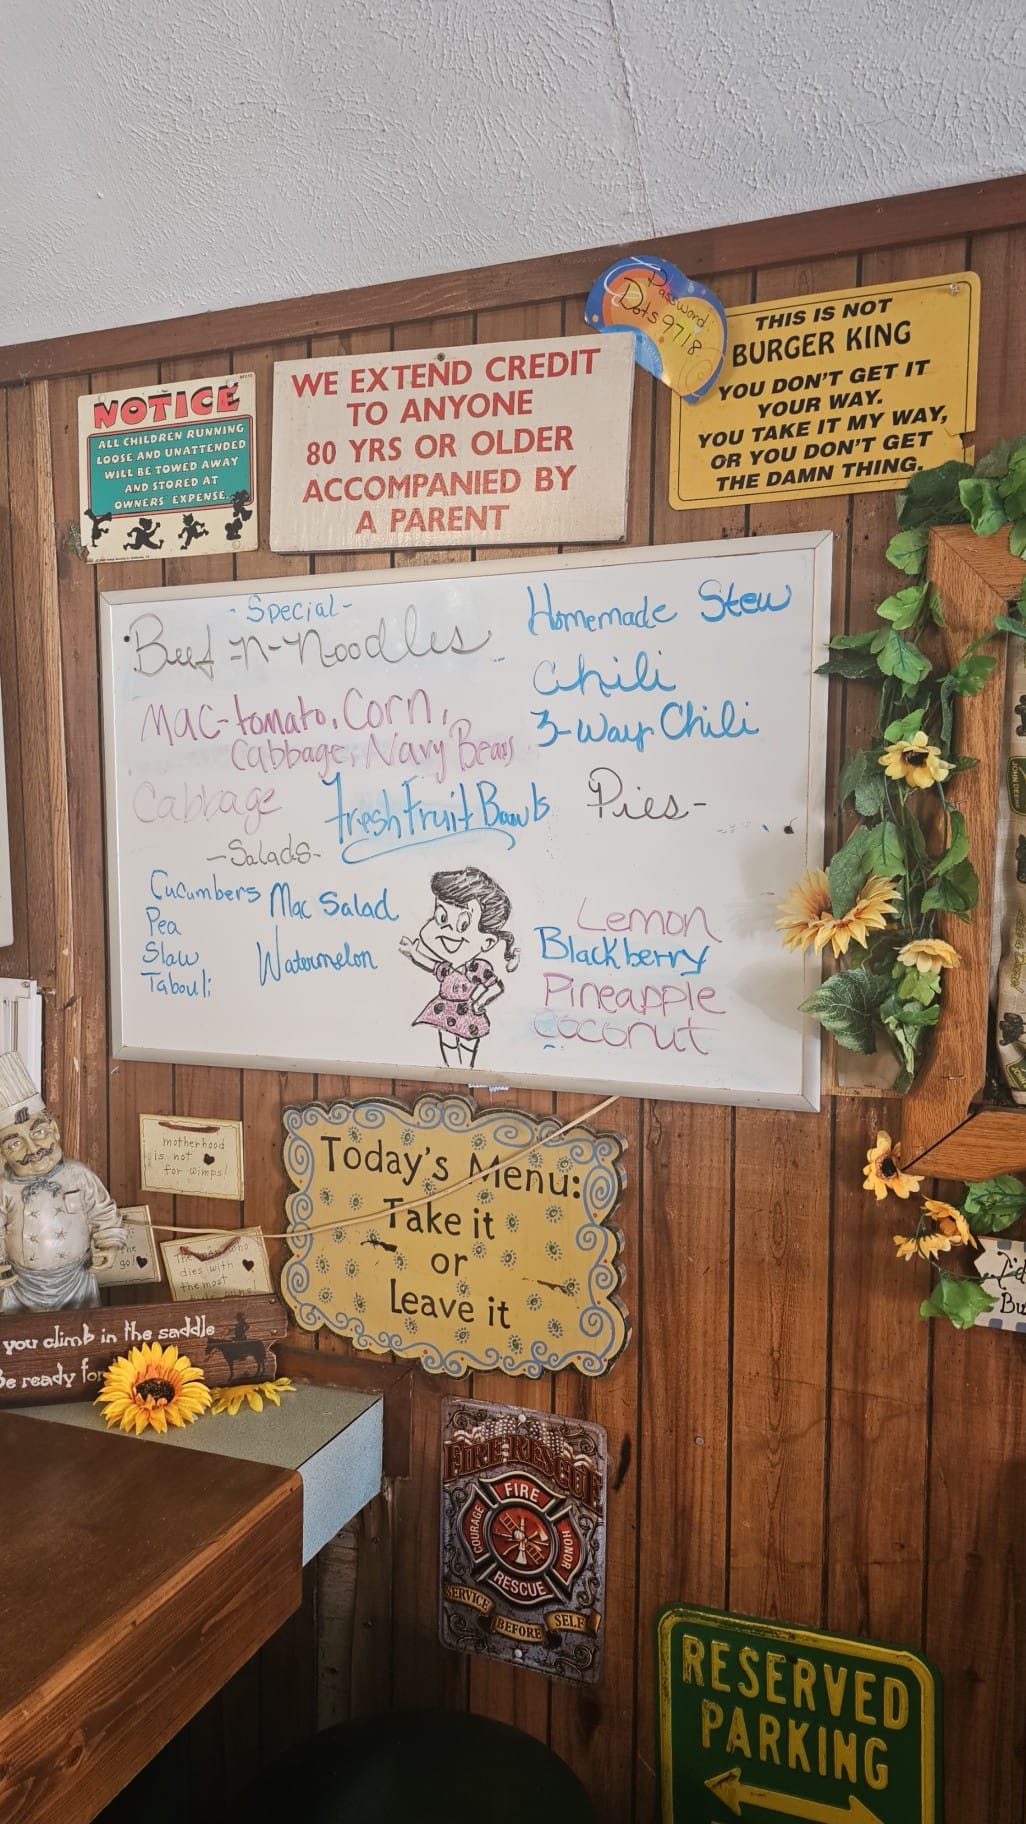 NOTICE
ALL CHILDREN RUNNING
LOOSE AND UNATTENDED
WILL BE TOWED AWAY
AND STORED AT
OWNERS' EXPENSE.
WE EXTEND CREDIT
TO ANYONE
80 YRS OR OLDER
ACCOMPANIED BY
A PARENT
Password:
Dots9718
THIS IS NOT
BURGER KING
YOU DON'T GET IT
YOUR WAY.
YOU TAKE IT MY WAY,
OR YOU DON'T GET
THE DAMN THING.
-Special-
Beef-n-Noodles
Mac-tomato, Corn,
Cabbage, Navy Beans
Cabbage
Fresh Fruit Bowls
-Salads-
Cucumbers
Pea
Slaw
Tabouli
Mac Salad
Watermelon
Homemade Stew
Chili
3-Way Chili
Pies-
Lemon
Blackberry
Pineapple
Coconut
JOHN DEERE
motherhood
is not
for wimps!
go!
who
dies with
the most
Today's Menu:
Take it
or
Leave it
you climb in the saddle
Be ready for
FIRE RESCUE
FIRE
COURAGE
HONOR
RESCUE
SERVICE
BEFORE
SELF
RESERVED
PARKING